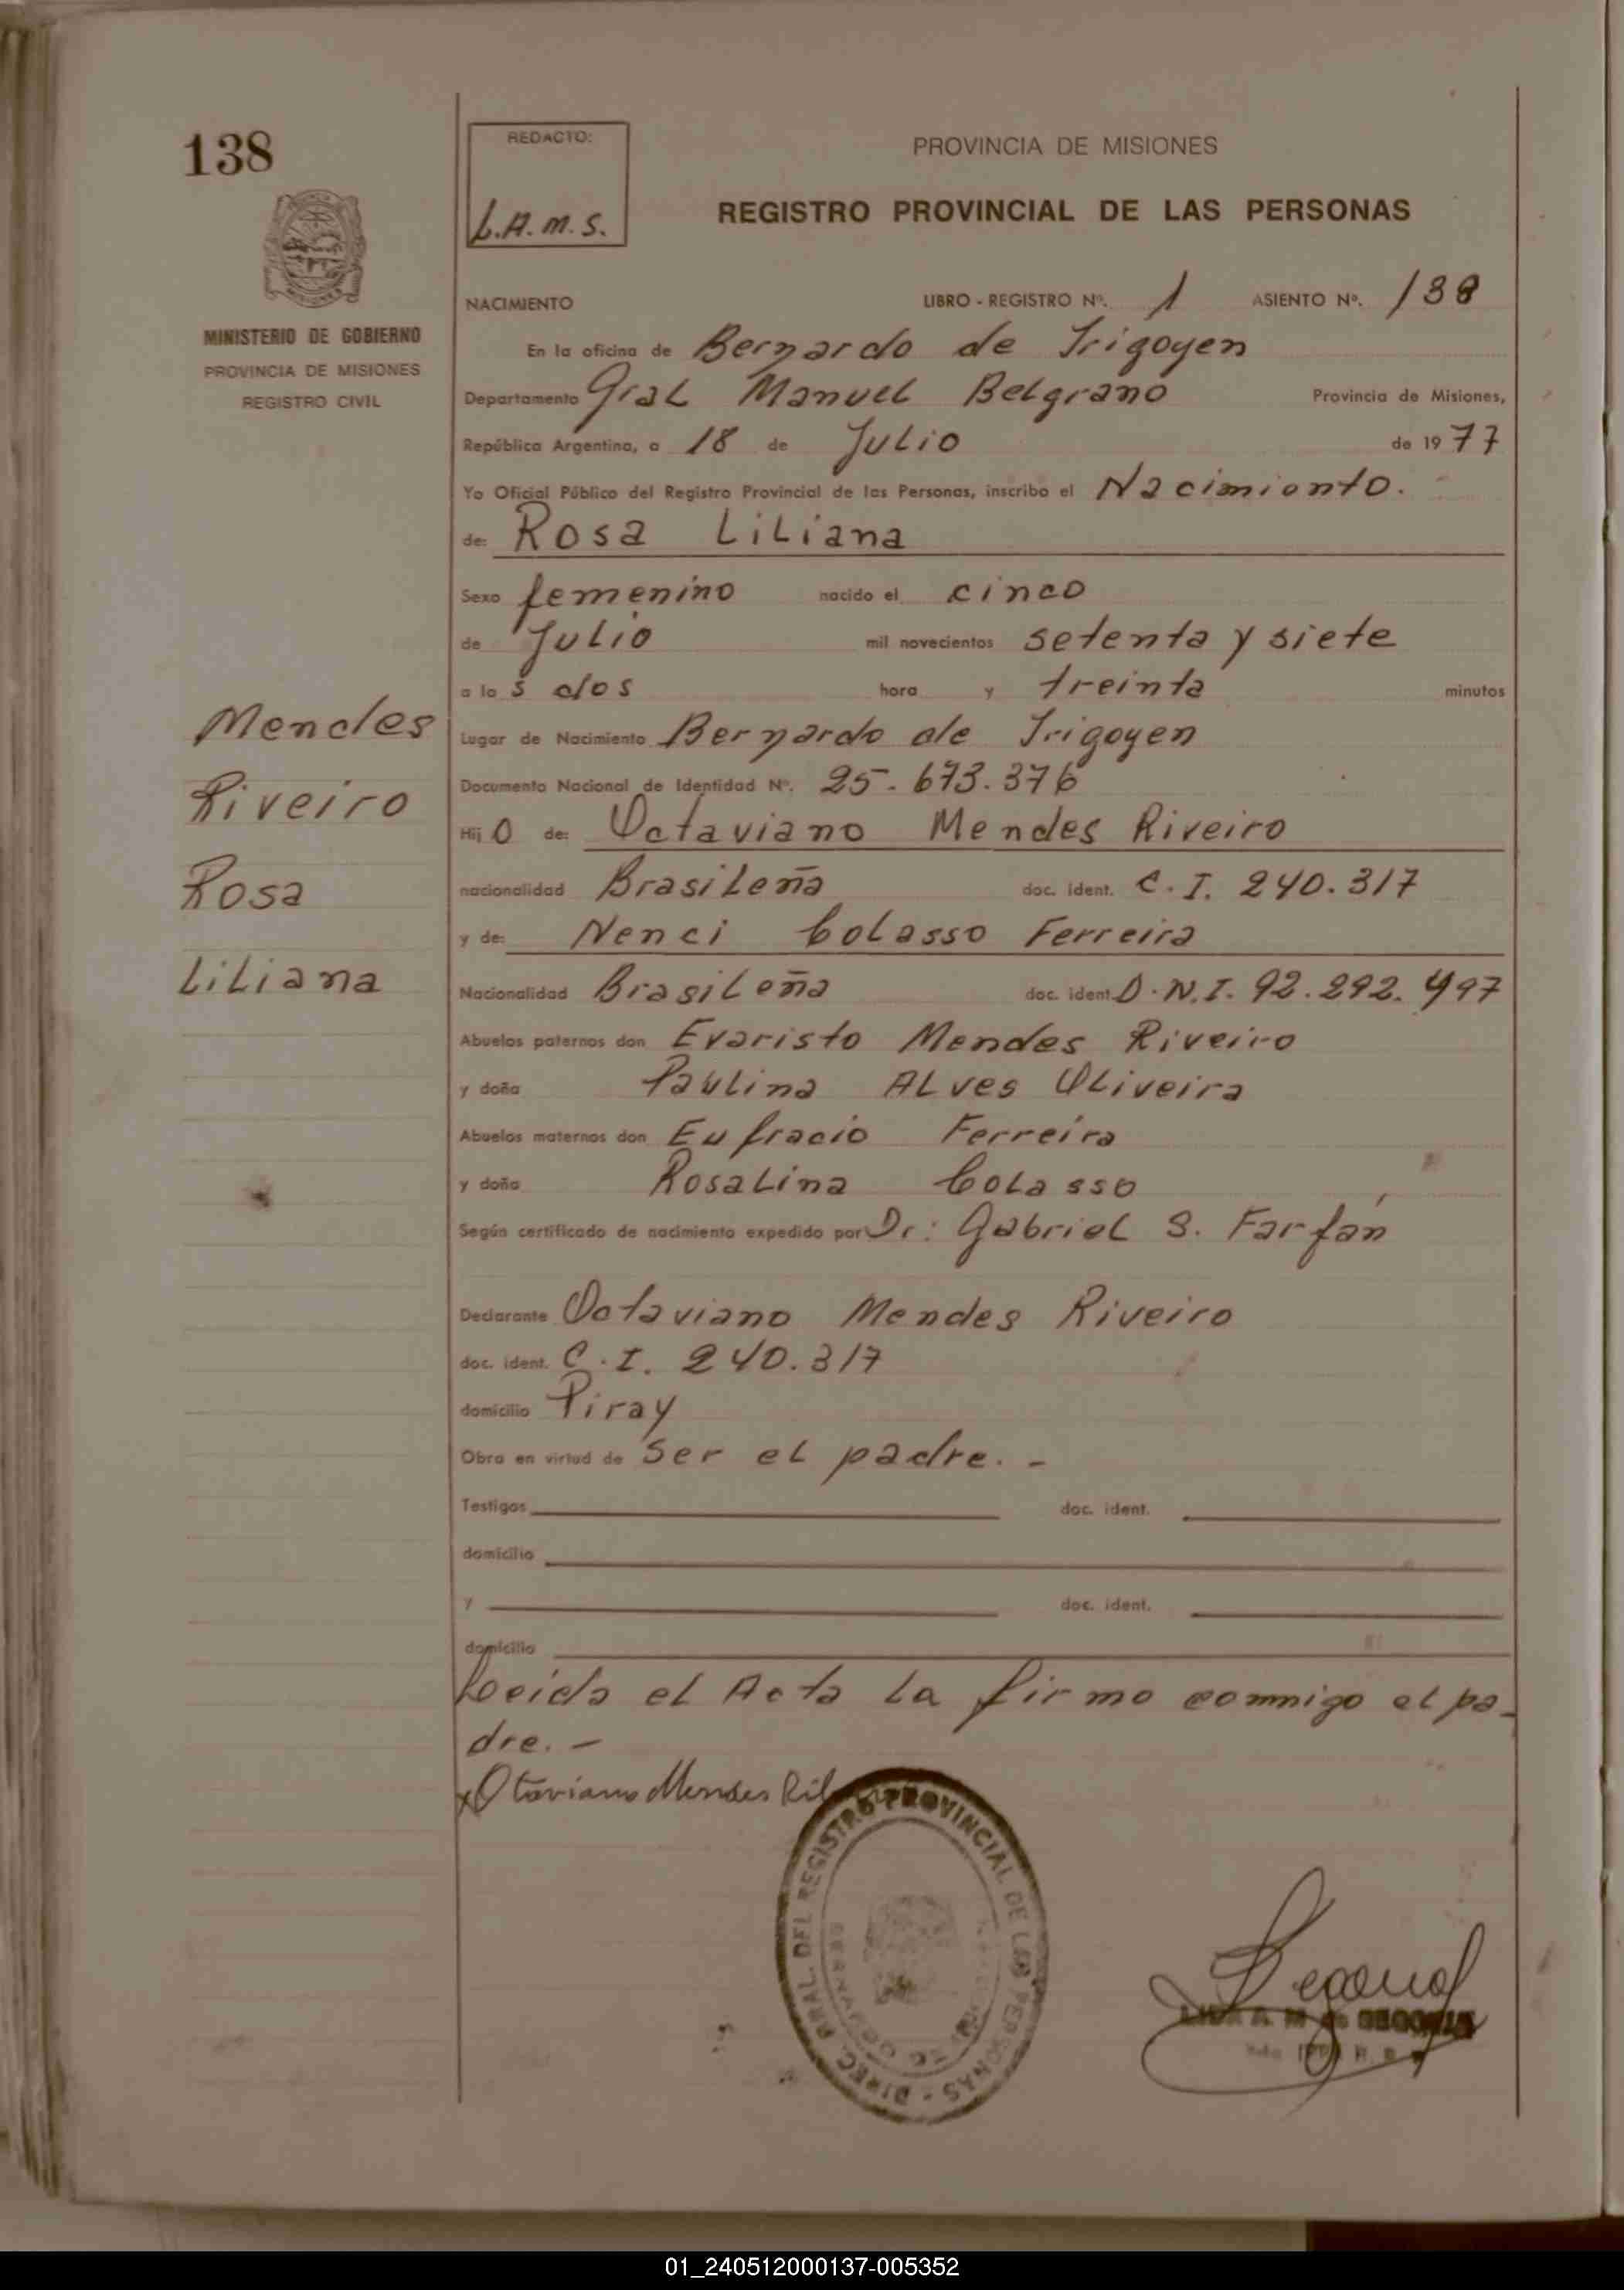 138
REDACTO:
L.A.M.S.
PROVINCIA DE MISIONES
REGISTRO PROVINCIAL DE LAS PERSONAS
MINISTERIO DE GOBIERNO
PROVINCIA DE MISIONES
REGISTRO CIVIL
NACIMIENTO LIBRO - REGISTRO Nº. 1 ASIENTO Nº. 138
En la oficina de Bernardo de Irigoyen
Departamento Gral Manuel Belgrano Provincia de Misiones,
República Argentina, a 18 de Julio de 1977
Yo Oficial Público del Registro Provincial de las Personas, inscribo el Nacimiento.
de: Rosa Liliana
Sexo femenino nacido el cinco
de Julio mil novecientos setenta y siete
a las dos hora y treinta minutos
Mendes
Riveiro
Rosa
Liliana
Lugar de Nacimiento Bernardo de Irigoyen
Documento Nacional de Identidad Nº. 25.673.376
Hijo de: Octaviano Mendes Riveiro
nacionalidad Brasileña doc. ident. C.I. 240.317
y de: Nenci Colasso Ferreira
Nacionalidad Brasileña doc. ident. D.N.I. 92.292.497
Abuelos paternos don Evaristo Mendes Riveiro
y doña Paulina Alves Oliveira
Abuelos maternos don Eufracio Ferreira
y doña Rosalina Colasso
Según certificado de nacimiento expedido por Dr: Gabriel S. Farfán
Declarante Octaviano Mendes Riveiro
doc. ident. C.I. 240.317
domicilio Piray
Obra en virtud de ser el padre. -
Testigos doc. ident.
domicilio
y doc. ident.
domicilio
Leeida el Acta la firmo conmigo el pa-
dre. -
x Otaviano Mendes
DIREC. GRAL. DEL REGISTRO PROVINCIAL DE LAS PERSONAS
LIDA A. M. de SEGOVIA
01_240512000137-005352